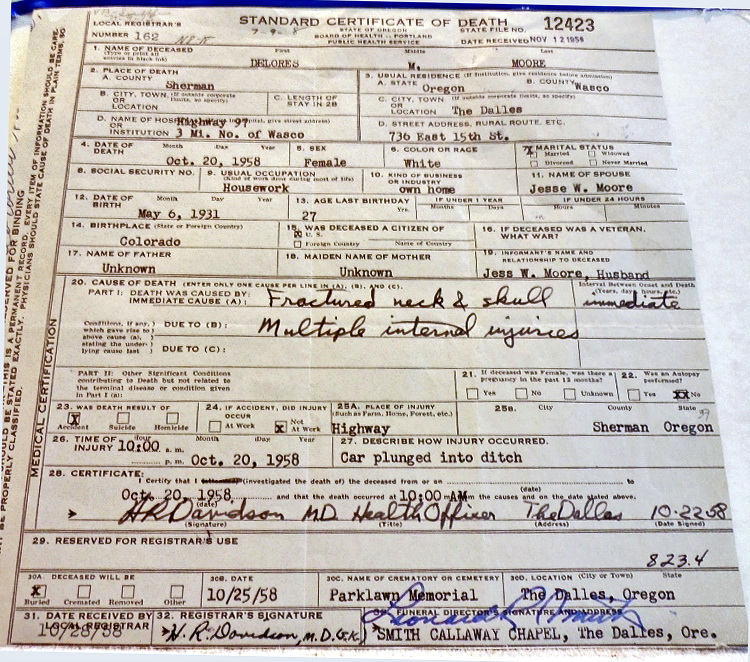 LOCAL REGISTRAR'S
NUMBER 162
7-9-8
STANDARD CERTIFICATE OF DEATH
STATE OF OREGON
BOARD OF HEALTH — PORTLAND
PUBLIC HEALTH SERVICE
12423
STATE FILE NO.
DATE RECEIVED NOV 12 1958
1. NAME OF DECEASED
(Type or print all entries in black ink)
First Middle Last
DELORES M. MOORE
2. PLACE OF DEATH
A. COUNTY
Sherman
3. USUAL RESIDENCE (If institution, give residence before admission)
A. STATE B. COUNTY
Oregon Wasco
B. CITY, TOWN, (If outside corporate limits, so specify)
OR
LOCATION
C. LENGTH OF
STAY IN 2B
C. CITY, TOWN, (If outside corporate limits, so specify)
OR
LOCATION The Dalles
D. NAME OF
Highway 97
INSTITUTION 3 Mi. No. of Wasco
D. STREET ADDRESS, RURAL ROUTE, ETC.
736 East 15th St.
4. DATE OF
DEATH
Month Day Year
Oct. 20, 1958
5. SEX
Female
6. COLOR OR RACE
White
7. MARITAL STATUS
X Married Widowed
Divorced Never Married
8. SOCIAL SECURITY NO.
9. USUAL OCCUPATION
(Kind of work done during most of life)
Housework
10. KIND OF BUSINESS
OR INDUSTRY
own home
11. NAME OF SPOUSE
Jesse W. Moore
12. DATE OF
BIRTH
Month Day Year
May 6, 1931
13. AGE LAST BIRTHDAY
27 Yrs.
IF UNDER 1 YEAR
Months Days
IF UNDER 24 HOURS
Hours Minutes
14. BIRTHPLACE (State or Foreign Country)
Colorado
15. WAS DECEASED A CITIZEN OF
X U. S.
Foreign Country Name of Country
16. IF DECEASED WAS A VETERAN.
WHAT WAR?
17. NAME OF FATHER
Unknown
18. MAIDEN NAME OF MOTHER
Unknown
19. INFORMANT'S NAME AND
RELATIONSHIP TO DECEASED
Jess W. Moore, Husband
MEDICAL CERTIFICATION
20. CAUSE OF DEATH (ENTER ONLY ONE CAUSE PER LINE IN (A), (B), AND (C).
PART I: DEATH WAS CAUSED BY:
IMMEDIATE CAUSE (A): Fractured neck & skull
Interval Between Onset and Death
(Years, days, hours, etc.)
immediate
Conditions, if any,
which gave rise to
above cause (a),
stating the under-
lying cause last
DUE TO (B): Multiple internal injuries
DUE TO (C):
PART II: Other Significant Conditions
contributing to Death but not related to
the terminal disease or condition given
in Part I (a):
21. If deceased was Female, was there a
pregnancy in the past 12 months?
Yes No Unknown
22. Was an Autopsy
performed?
Yes XX No
23. WAS DEATH RESULT OF
X
Accident Suicide Homicide
24. IF ACCIDENT, DID INJURY
OCCUR
At Work X Not At Work
25A. PLACE OF INJURY
(Such as Farm, Home, Forest, etc.)
Highway
25B. City County State
Sherman Oregon
26. TIME OF
INJURY
Hour
10:00
a. m.
p. m.
Month Day Year
Oct. 20, 1958
27. DESCRIBE HOW INJURY OCCURRED.
Car plunged into ditch
28. CERTIFICATE:
I Certify that I (investigated the death of) the deceased from or on to
Oct. 20, 1958 (date) and that the death occurred at 10:00 AM from the causes and on the date stated above.
H R Davidson M.D. Health Officer The Dalles 10-22-58
(Signature) (Title) (Address) (Date Signed)
29. RESERVED FOR REGISTRAR'S USE
823.4
30A. DECEASED WILL BE
X
Buried Cremated Removed Other
30B. DATE
10/25/58
30C. NAME OF CREMATORY OR CEMETERY
Parklawn Memorial
30D. LOCATION (City or Town) State
The Dalles, Oregon
31. DATE RECEIVED BY
LOCAL REGISTRAR
10/28/58
32. REGISTRAR'S SIGNATURE
H. R. Davidson, M.D.
33. FUNERAL DIRECTOR'S SIGNATURE AND ADDRESS
SMITH CALLAWAY CHAPEL, The Dalles, Ore.